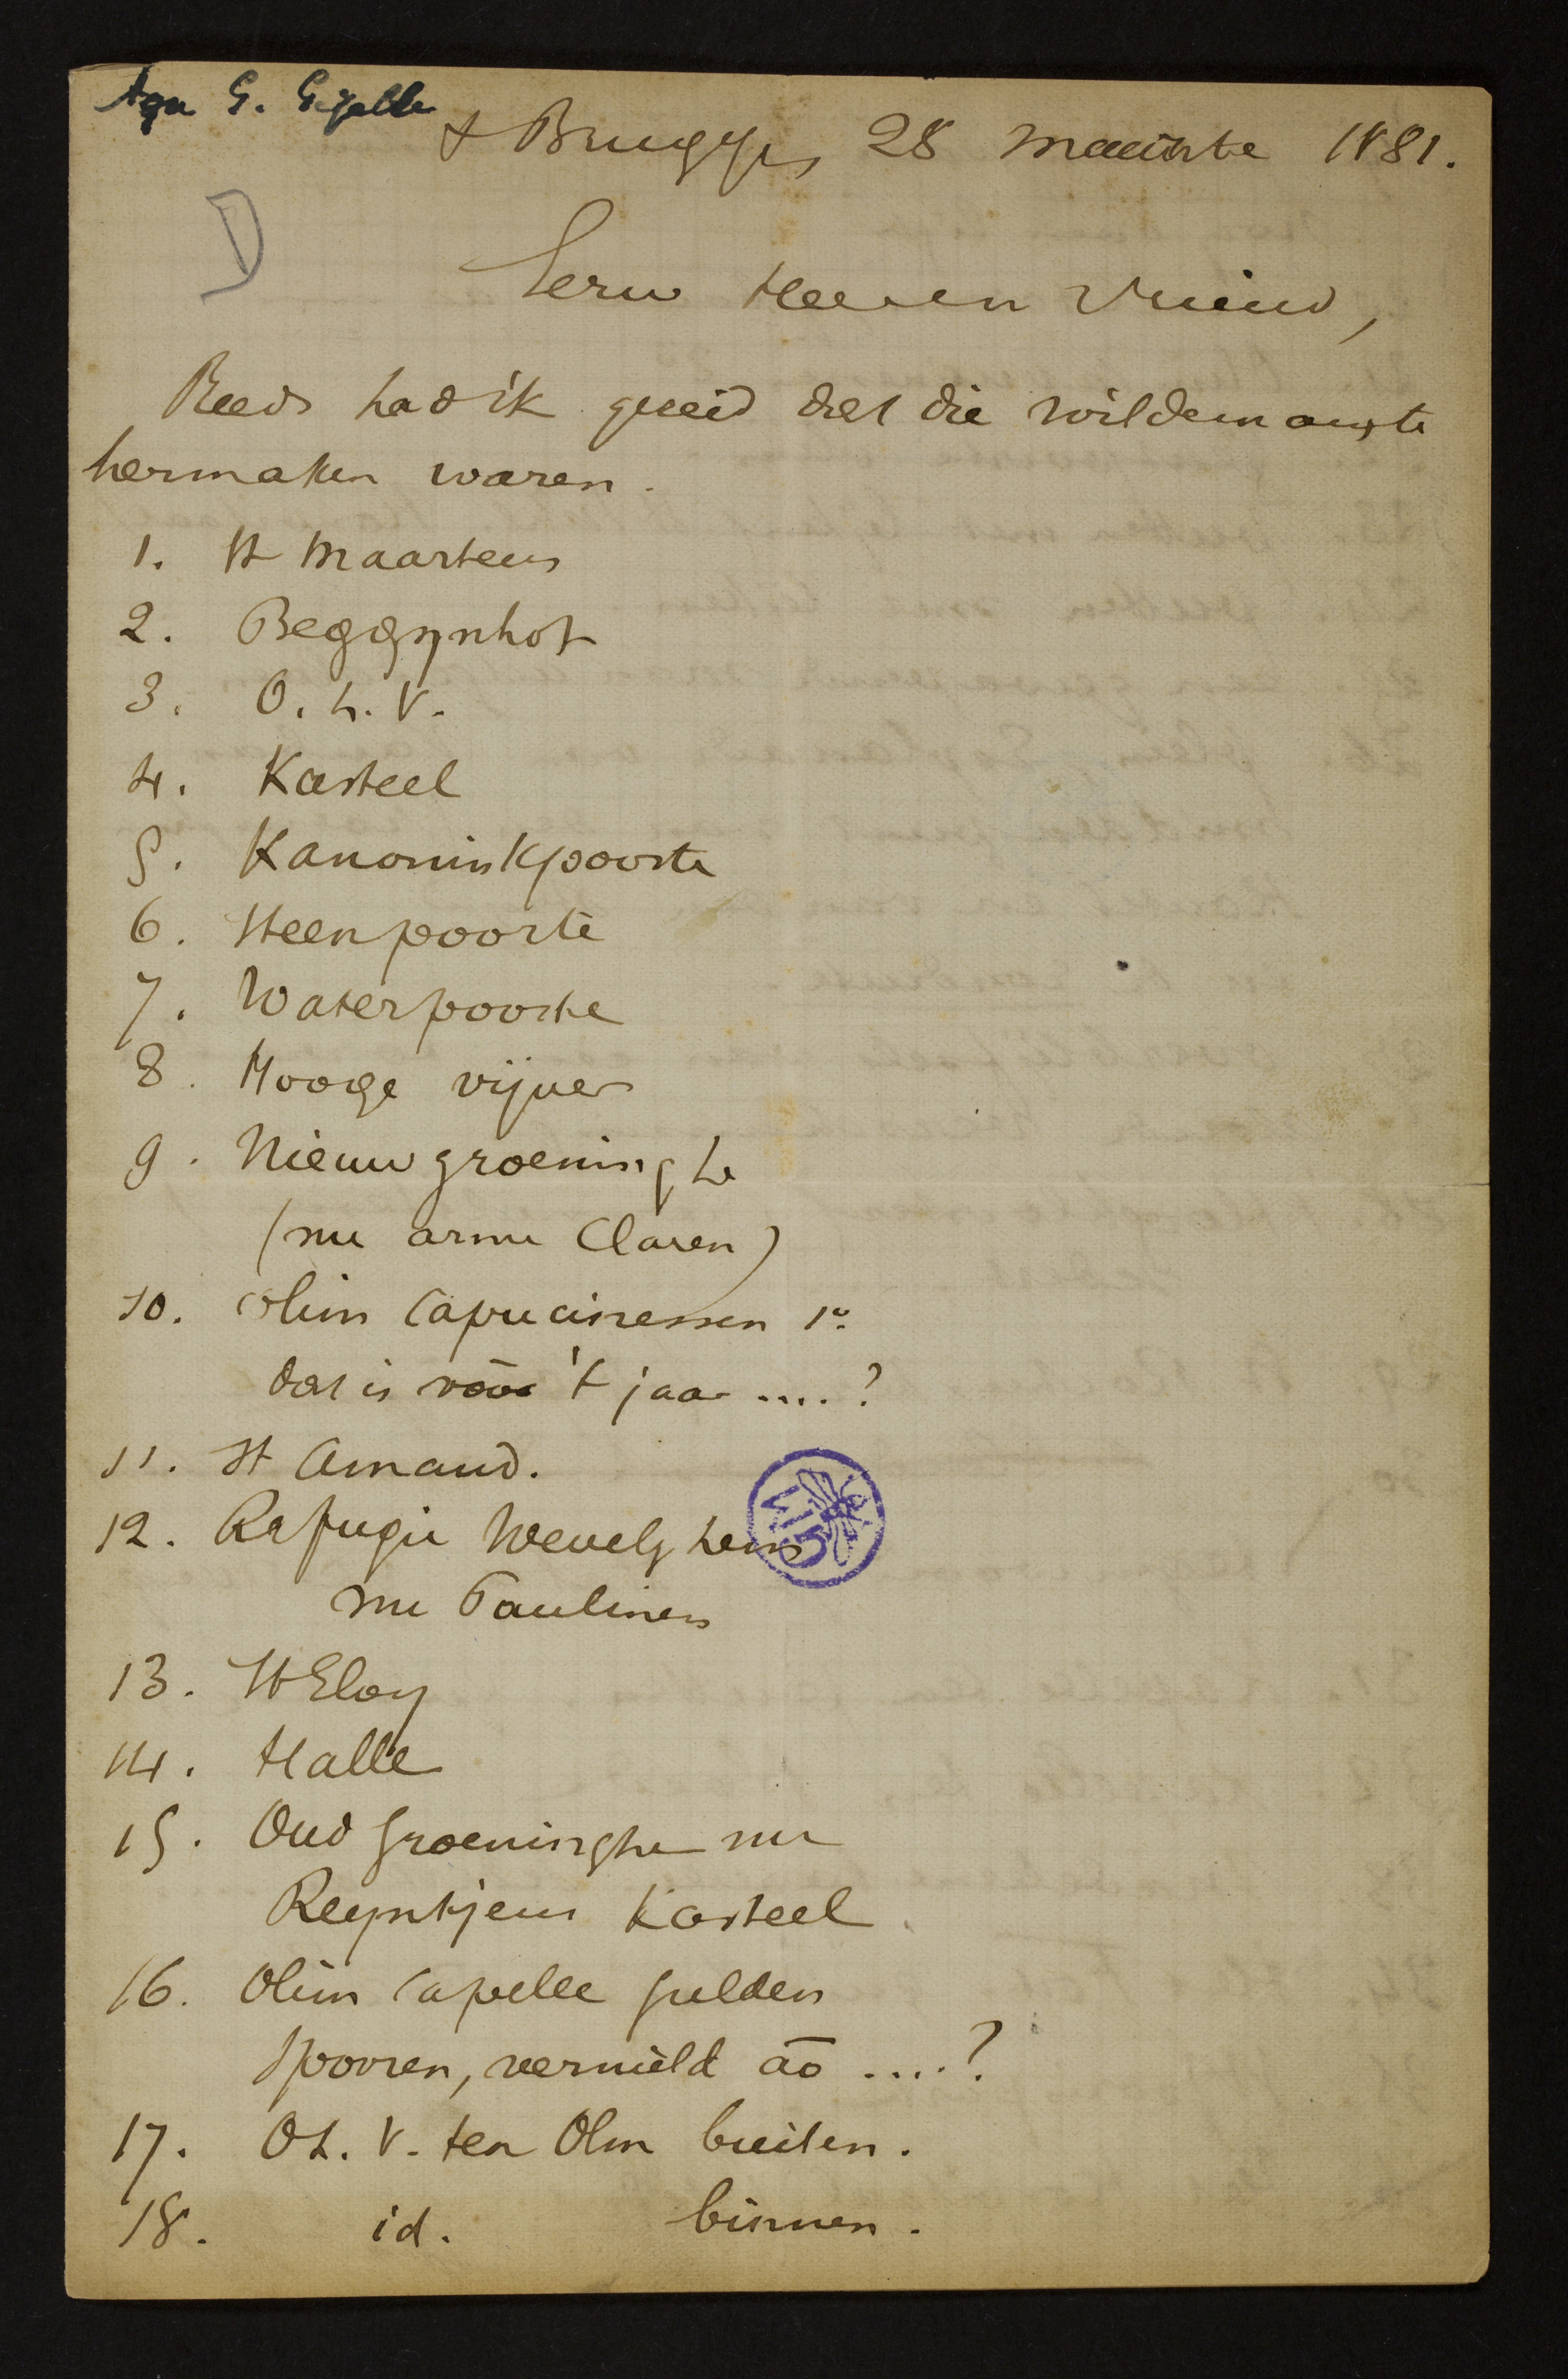 Aan G. Gezelle
+ Brugge, 28 maarte 1881.
D
Eerw Heer en Vriend,
Reeds had ik gezeid dat die wildeman
hermaken waren.
1. St Maartens
2. Beggynhof
3. O. L. V.
4. Kasteel
5. Kanoninkpoorte
6. Steenpoorte
7. Waterpoorte
8. Hooge vijver
9. Nieuw groeninghe
(nu arme Claren)
10. olim Capucinessen 1º
dat is vóór 't jaar ....?
11. St Amand.
12. Refugie Wevelghem
nu Paulinen
13. St Eloy
14. Halle
15. Oud groeninghe nu
Reyntjens Kasteel
16. Olim Capelle gulden
spooren, vernield ao ....?
17. O L. V. ten Olm buiten.
18. id. binnen.